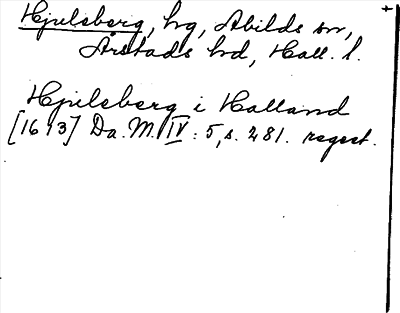 Hjulsberg, hg, Abilds sn,
Årstads hd, Hall. l.
Hjulsberg i Halland
[1613] Da. M. IV: 5, s. 281. regest.